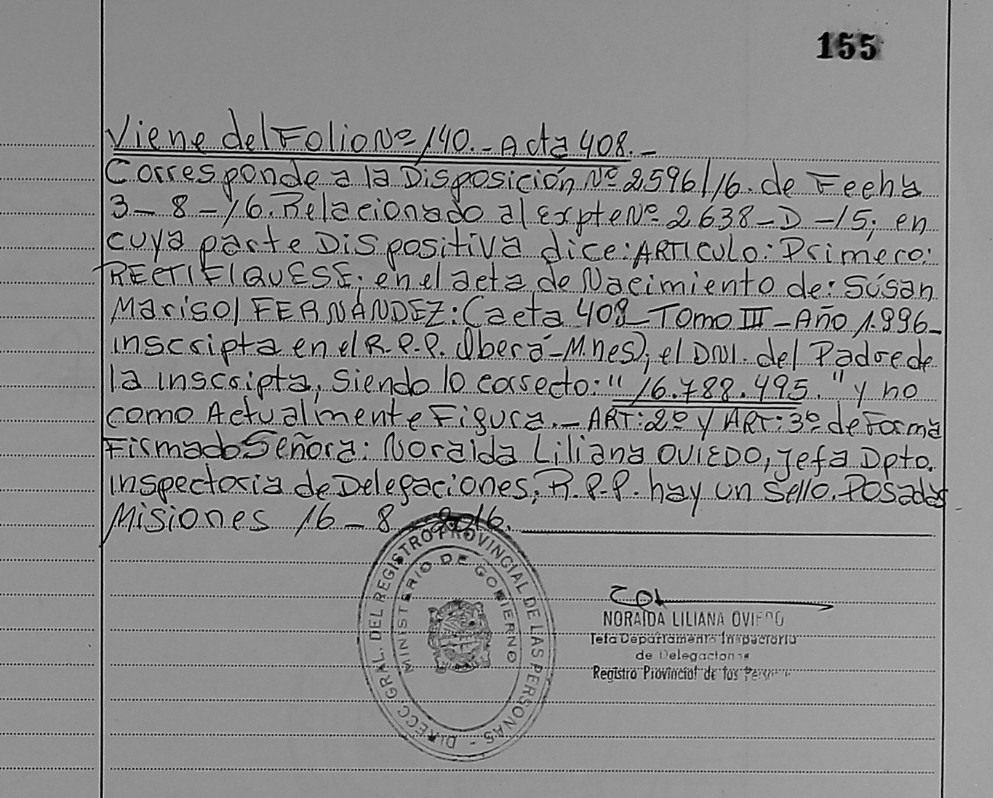 155
Viene del Folio Nº 140.- Acta 408.-
Corresponde a la Disposición Nº 2596/16. de Fecha
3-8-16. Relacionado al expte Nº 2638-D-15; en
cuya parte Dispositiva dice: ARTICULO: Primero:
RECTIFIQUESE; en el acta de Nacimiento de: Susan
Marisol FERNÁNDEZ: (acta 408 Tomo III - Año 1.996-
inscripta en el R.P.P. Oberá-Mnes), el DNI. del Padre de
la inscripta, siendo lo correcto: "16.788.495." y no
como Actualmente Figura.- ART: 2º y ART: 3º de Forma
Firmado Señora: Noraida Liliana OVIEDO, Jefa Dpto.
inspectoria de Delegaciones, R.P.P. hay un sello. Posadas
Misiones 16-8-2016.
DIRECC. GRAL. DEL REGISTRO PROVINCIAL DE LAS PERSONAS -
MINISTERIO DE GOBIERNO
NORAIDA LILIANA OVIEDO
Jefa Departamento Inspectoria
de Delegaciones
Registro Provincial de las Personas